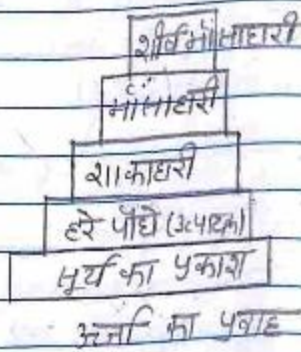 शीर्ष मांसाहारी
मांसाहारी
शाकाहारी
हरे पौधे (उत्पादक)
सूर्य का प्रकाश
ऊर्जा का प्रवाह